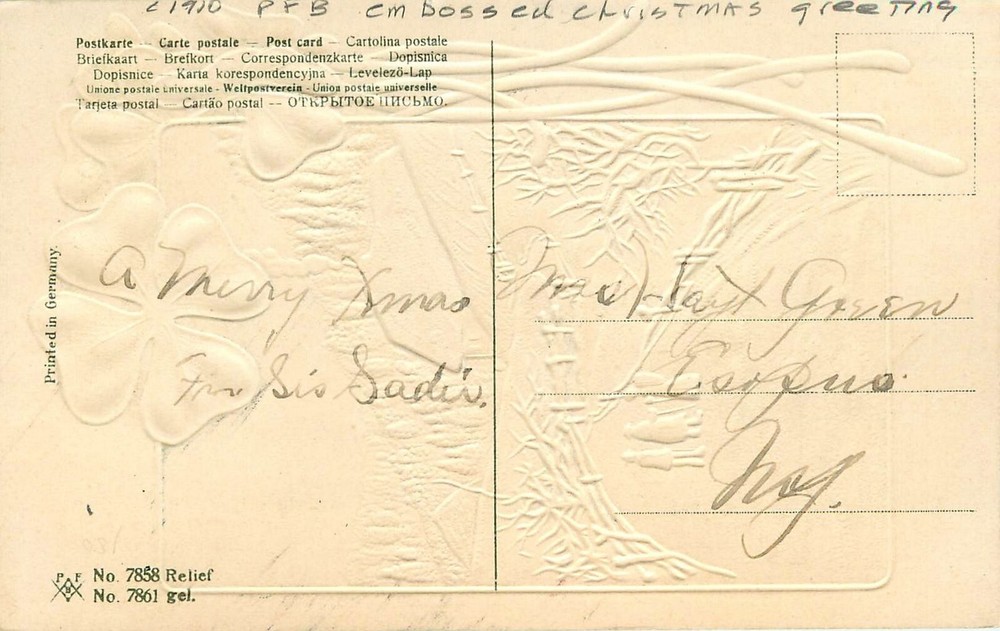 c1910 PFB embossed christmas greeting
Postkarte — Carte postale — Post card — Cartolina postale
Briefkaart — Brefkort — Correspondenzkarte — Dopisnica
Dopisnice — Karta korespondencyjna — Levelező-Lap
Unione postale universale - Weltpostverein - Union postale universelle
Tarjeta postal — Cartão postal — ОТКРЫТОЕ ПИСЬМО.
Printed in Germany.
A Merry Xmas
Fro Sis Sadie.
Green
Esopus
N.Y.
P F
B
No. 7858 Relief
No. 7861 gel.